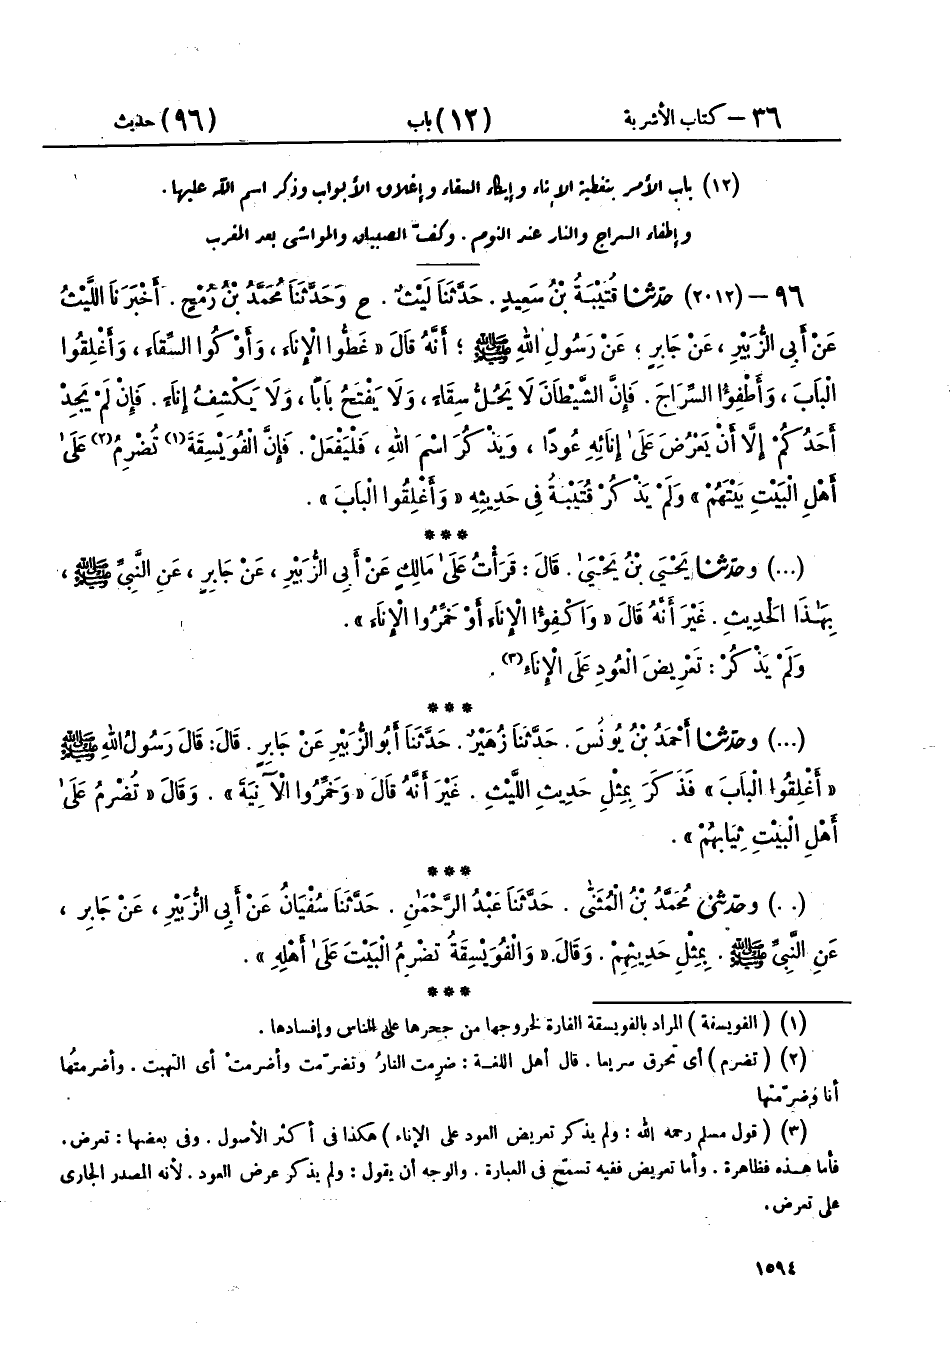 ٣٦ – كتاب الأشربة (١٢) باب (٩٦) حديث
(١٢) باب الأمر بتغطية الإناء وإيكاء السقاء وإغلاق الأبواب وذكر اسم الله عليها.
وإطفاء السراج والنار عند النوم. وكفّ الصبيان والمواشى بعد المغرب
٩٦ – (٢٠١٢) حدّثنا قُتَيْبَةُ بْنُ سَعِيدٍ. حَدَّثَنَا لَيْثٌ. ح وَحَدَّثَنَا مُحَمَّدُ بْنُ رُمْحٍ. أَخْبَرَنَا اللَّيْثُ
عَنْ أَبِى الزُّبَيْرِ، عَنْ جَابِرٍ؛ عَنْ رَسُولِ اللهِ ﷺ؛ أَنَّهُ قَالَ « غَطُّوا الْإِنَاءَ، وَأَوْكُوا السِّقَاءَ، وَأَغْلِقُوا
الْبَابَ، وَأَطْفِؤُا السِّرَاجَ. فَإِنَّ الشَّيْطَانَ لَا يَحُلُّ سِقَاءً، وَلَا يَفْتَحُ بَابًا، وَلَا يَكْشِفُ إِنَاءً. فَإِنْ لَمْ يَجِدْ
أَحَدُكُمْ إِلَّا أَنْ يَعْرُضَ عَلَىٰ إِنَائِهِ عُودًا، وَيَذْكُرَ اسْمَ اللهِ، فَلْيَفْعَلْ. فَإِنَّ الْفُوَيْسِقَةَ(١) تُضْرِمُ(٢) عَلَىٰ
أَهْلِ الْبَيْتِ بَيْتَهُمْ » وَلَمْ يَذْكُرْ قُتَيْبَةُ فِى حَدِيثِهِ « وَأَغْلِقُوا الْبَابَ ».
***
(...) وحدّثنا يَحْيَىٰ بْنُ يَحْيَىٰ. قَالَ: قَرَأْتُ عَلَىٰ مَالِكٍ عَنْ أَبِى الزُّبَيْرِ، عَنْ جَابِرٍ، عَنِ النَّبِىِّ ﷺ،
بِهَـٰذَا الْحَدِيثِ. غَيْرَ أَنَّهُ قَالَ « وَاكْفِؤُا الْإِنَاءَ أَوْ خَمِّرُوا الْإِنَاءَ ».
وَلَمْ يَذْكُرْ: تَعْرِيضَ الْعُودِ عَلَى الْإِنَاءِ(٣).
***
(...) وحدّثنا أَحْمَدُ بْنُ يُونُسَ. حَدَّثَنَا زُهَيْرٌ. حَدَّثَنَا أَبُو الزُّبَيْرِ عَنْ جَابِرٍ. قَالَ: قَالَ رَسُولُ اللهِ ﷺ
« أَغْلِقُوا الْبَابَ » فَذَكَرَ بِمِثْلِ حَدِيثِ اللَّيْثِ. غَيْرَ أَنَّهُ قَالَ « وَخَمِّرُوا الْآنِيَةَ ». وَقَالَ « تُضْرِمُ عَلَىٰ
أَهْلِ الْبَيْتِ ثِيَابَهُمْ ».
***
(..) وحدّثنى مُحَمَّدُ بْنُ الْمُثَنَّىٰ. حَدَّثَنَا عَبْدُ الرَّحْمَـٰنِ. حَدَّثَنَا سُفْيَانُ عَنْ أَبِى الزُّبَيْرِ، عَنْ جَابِرٍ،
عَنِ النَّبِىِّ ﷺ. بِمِثْلِ حَدِيثِهِمْ. وَقَالَ « وَالْفُوَيْسِقَةُ تُضْرِمُ الْبَيْتَ عَلَىٰ أَهْلِهِ ».
***
(١) (الفويسقة) المراد بالفويسقة الفارة لخروجها من جحرها على الناس وإفسادها.
(٢) (تضرم) أى تحرق سريعا. قال أهل اللغة: ضرمت النارُ وتضرّمت وأضرمتْ أى التهبت. وأضرمتُها
أنا وضرّمتها
(٣) (قول مسلم رحمه الله: ولم يذكر تعريض العود على الإناء) هكذا فى أكثر الأصول. وفى بعضها: تعرض.
فأما هذه فظاهرة. وأما تعريض ففيه تسمّح فى العبارة. والوجه أن يقول: ولم يذكر عرض العود. لأنه المصدر الجارى
على تعرض.
١٥٩٤